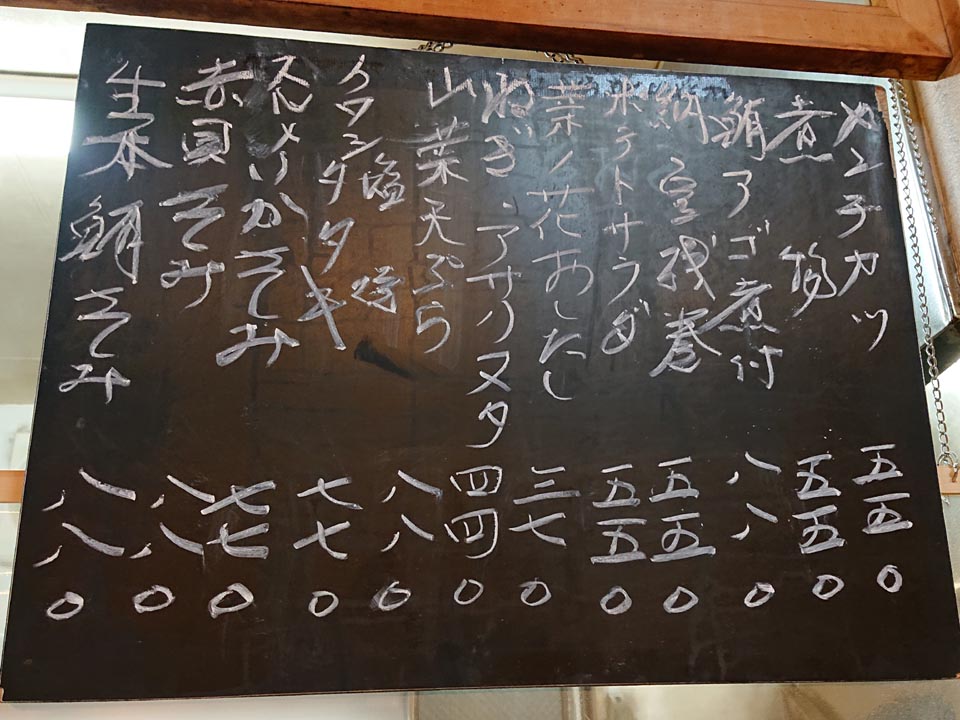 メンチカツ 五五〇
煮物 五五〇
鮪アゴ煮付 八八〇
巻 五五〇
ポテトサラダ 五五〇
菜ノ花おしたし 三七〇
ねぎ、アサリヌタ 四四〇
山菜天ぷら 八八〇
塩焼
イワシタタキ 七七〇
スルメイカさしみ 七七〇
赤貝さしみ 八八〇
生本鮪さしみ 八八〇